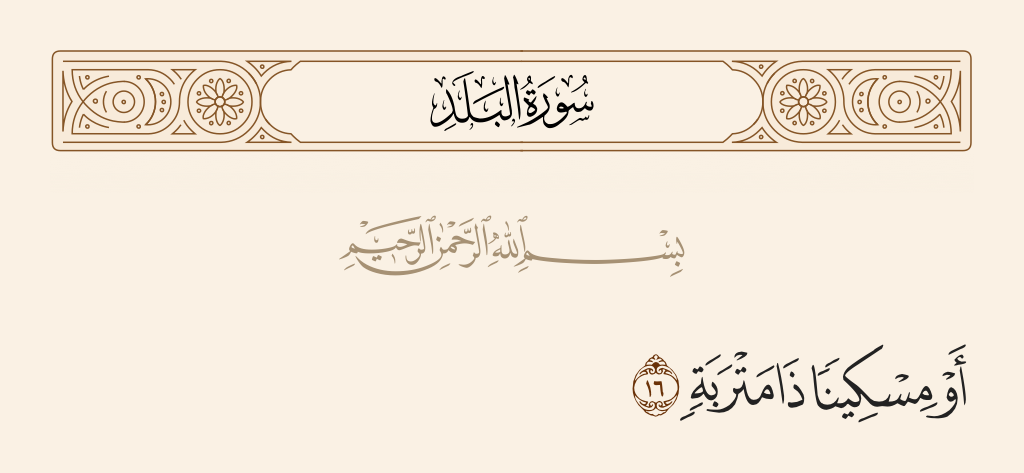 سُورَةُ البَلَدِ
بِسْمِ ٱللَّهِ ٱلرَّحْمَٰنِ ٱلرَّحِيمِ
أَوْ مِسْكِينًا ذَا مَتْرَبَةٍ ١٦